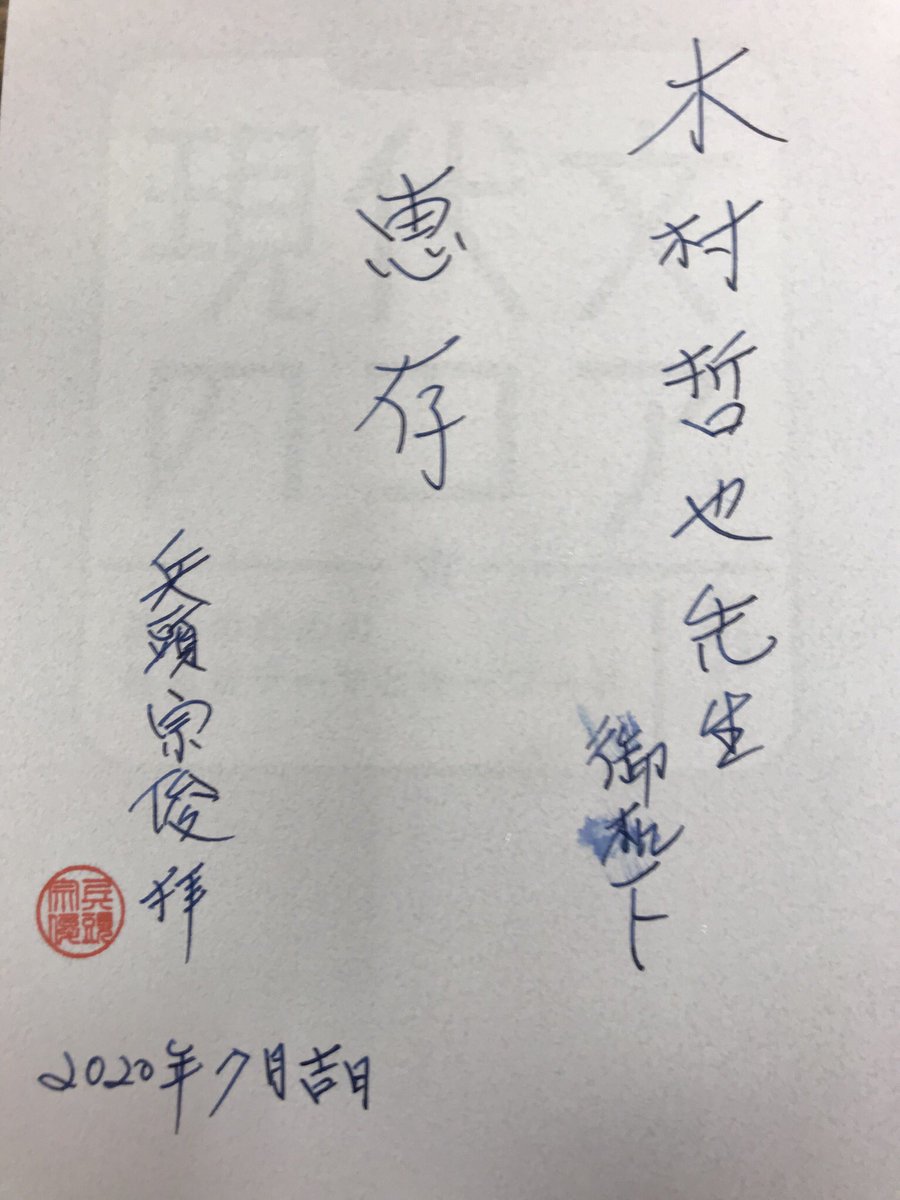 木村哲也先生
御机下
惠存
兵頭宗俊拝
兵頭
宗俊
2020年7月吉日